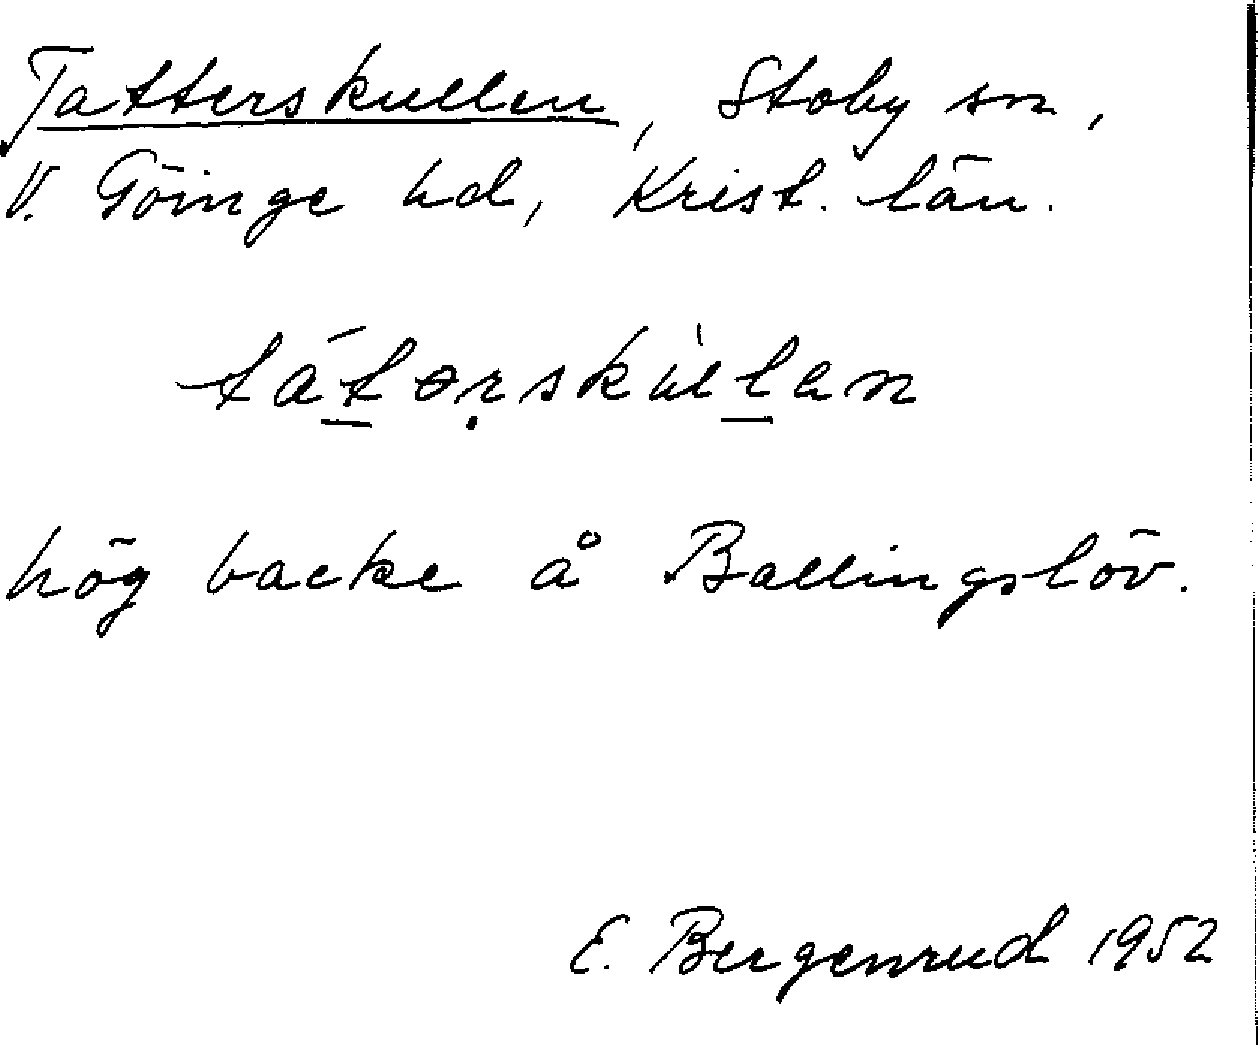 Tatterskullen, Stoby sn,
V. Göinge hd, Krist. län.
tátərskùlan
hög backe å Ballingslöv.
E. Bergenrud 1952